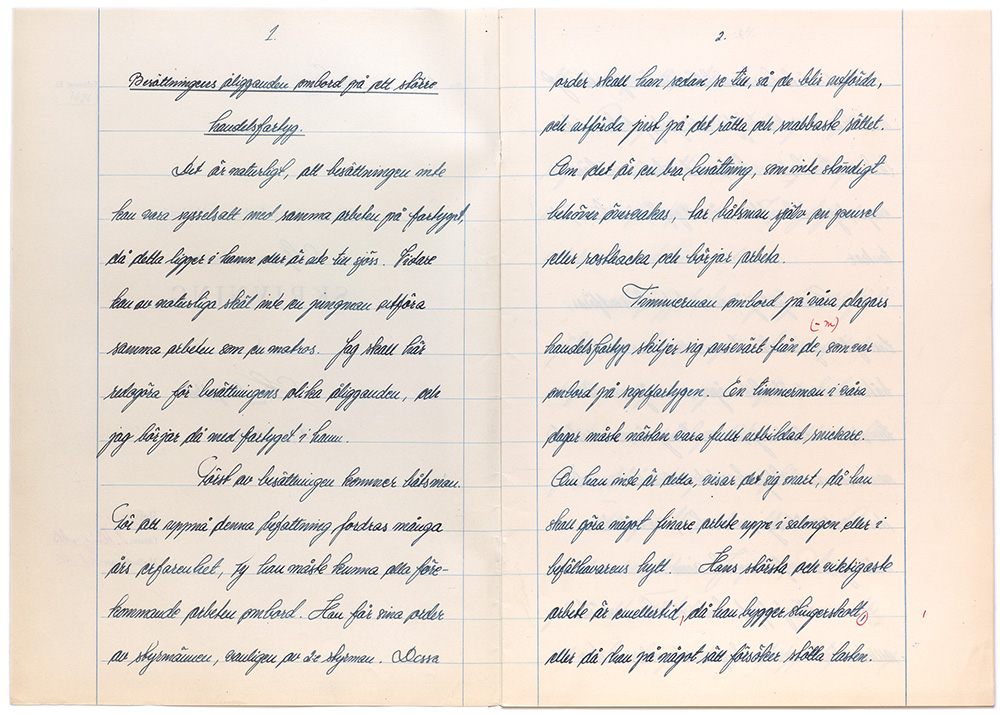 1.
Besättningens åligganden ombord på ett större
handelsfartyg.
Det är naturligt, att besättningen inte
kan vara sysselsatt med samma arbeten på fartyget,
då detta ligger i hamn eller är ute till sjöss. Vidare
kan av naturliga skäl inte en jungman utföra
samma arbeten som en matros. Jag skall här
redogöra för besättningens olika åligganden, och
jag börjar då med fartyget i hamn.
Först av besättningen kommer båtsman.
För att uppnå denna befattning fordras många
års erfarenhet, ty han måste kunna alla före-
kommande arbeten ombord. Han får sina order
av styrmännen, vanligen av 2:e styrman. Dessa
2.
order skall han sedan se till, så de blir utförda,
och utförda just på det rätta och snabbaste sättet.
Om det är en bra besättning, som inte ständigt
behöver övervakas, tar båtsman själv en pensel
eller rosthacka och börjar arbeta.
Timmerman ombord på våra dagars
(-m)
handelsfartyg skiljer sig avsevärt från de, som var
ombord på segelfartygen. En timmerman i våra
dagar måste nästan vara fullt utbildad snickare.
Om han inte är detta, visar det sig snart, då han
skall göra något finare arbete uppe i salongen eller i
befälhavarens hytt. Hans största och viktigaste
arbete är emellertid, då han bygger slingerskott,
eller då han på något sätt försöker stötta lasten.